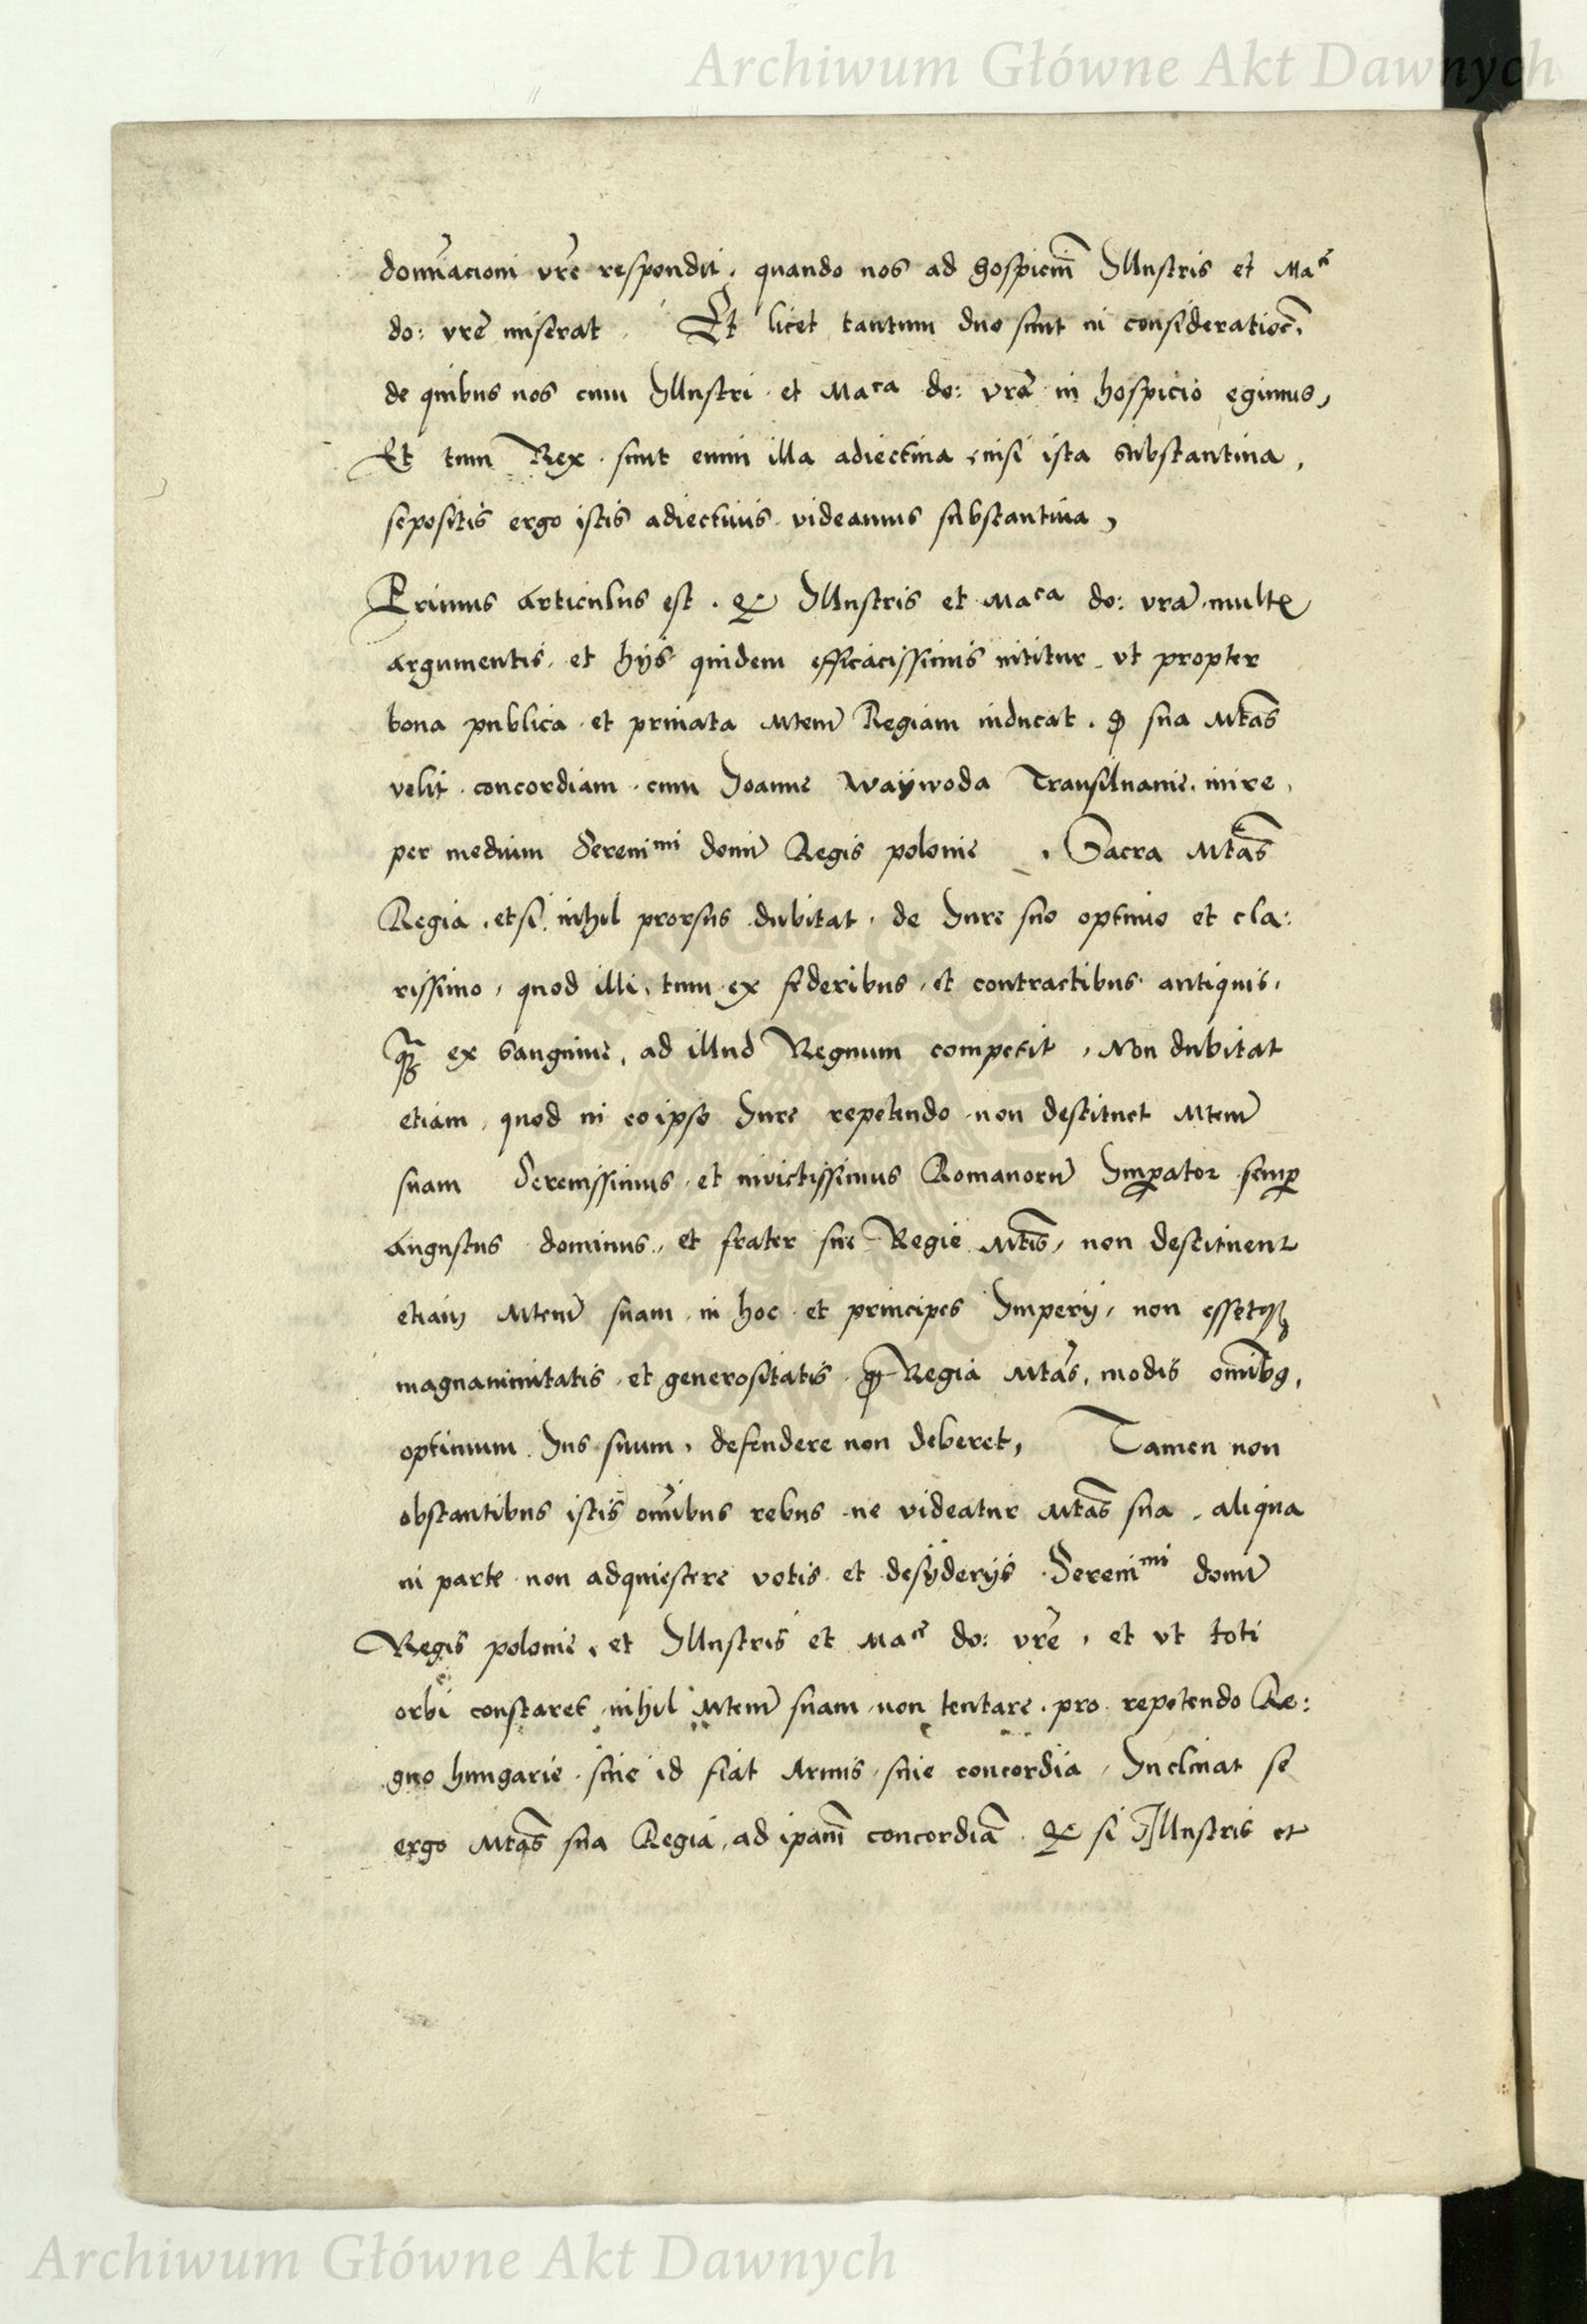 Archiwum Główne Akt Dawnych
domīnacioni vr̃e respondit, quando nos ad hospiciū Illustris et Ma^ce
do: vr̃e miserat. Et licet tantum duo sunt in consideratiōe,
de quibus nos cum Illustri et Ma^ca do: vr̃a in hospicio egimus,
Et tum Rex. sunt enim illa adiectiua, nisi ista substantiua,
sepositis ergo istis adiectiuis videamus substantiua,
Primus articulus est. Illustris et Ma^ca do: vr̃a multꝭ
argumentis, et hijs quidem efficacissimis nititur, vt propter
bona publica et priuata Mtem̃ Regiam inducat, sua Mtãs
velit concordiam cum Joanne Waÿwoda Transiluanie, inire,
per medium Sereni^mi domī Regis polonie. Sacra Mtãs
Regia, etsi nihil prorsus dubitat, de Iure suo optimo et cla:
rissimo, quod illi, tum ex federibus, et contractibus antiquis,
ex sanguine, ad illud Regnum competit, Non dubitat
etiam, quod in eo ipso Iure repetendo non destituet Mtem̃
suam Serenissimus et inuictissimus Romanorū Imꝑator semꝑ
Augustus dominus, et frater sue Regie Mtĩs, non destituent
etiam Mtem̃ suam in hoc et principes Imperij, non essetqꝫ
magnanimitatis et generositatis Regia Mtãs, modis om̃ibꝯ,
optimum Ius suum, defendere non deberet, Tamen non
obstantibus istis om̃ibus rebus ne videatur Mtãs sua, aliqua
in parte non adquiescere votis et desÿderijs Sereni^mi domī
Regis polonie, et Illustris et Ma^ce do: vr̃e, et vt toti
orbi constaret nihil Mtem̃ suam non tentare, pro repetendo Re:
gno hungarie siue id fiat Armis, siue concordia, Inclinat se
ergo Mtãs sua Regia, ad ipam̃ concordiā si Illustris et
Archiwum Główne Akt Dawnych